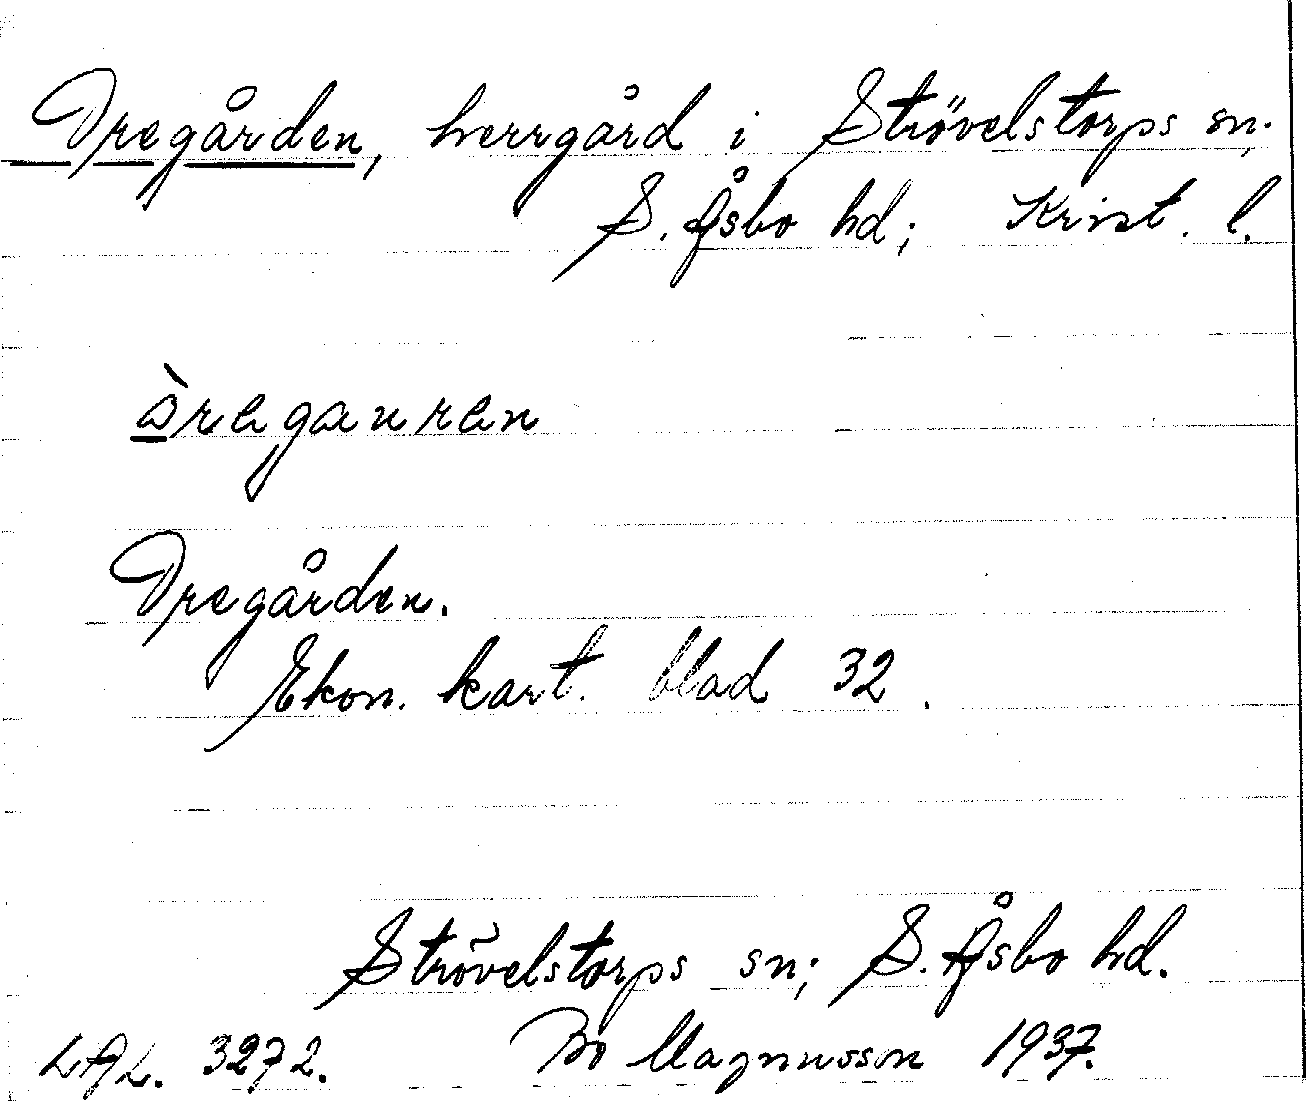 Oregården, herrgård i Strövelstorps sn;
S. Åsbo hd; Krist. l.
òregauren
Oregården.
Ekon. kart. blad 32.
Strövelstorps sn; S. Åsbo hd.
LAL. 3272. Bo Magnusson 1937.